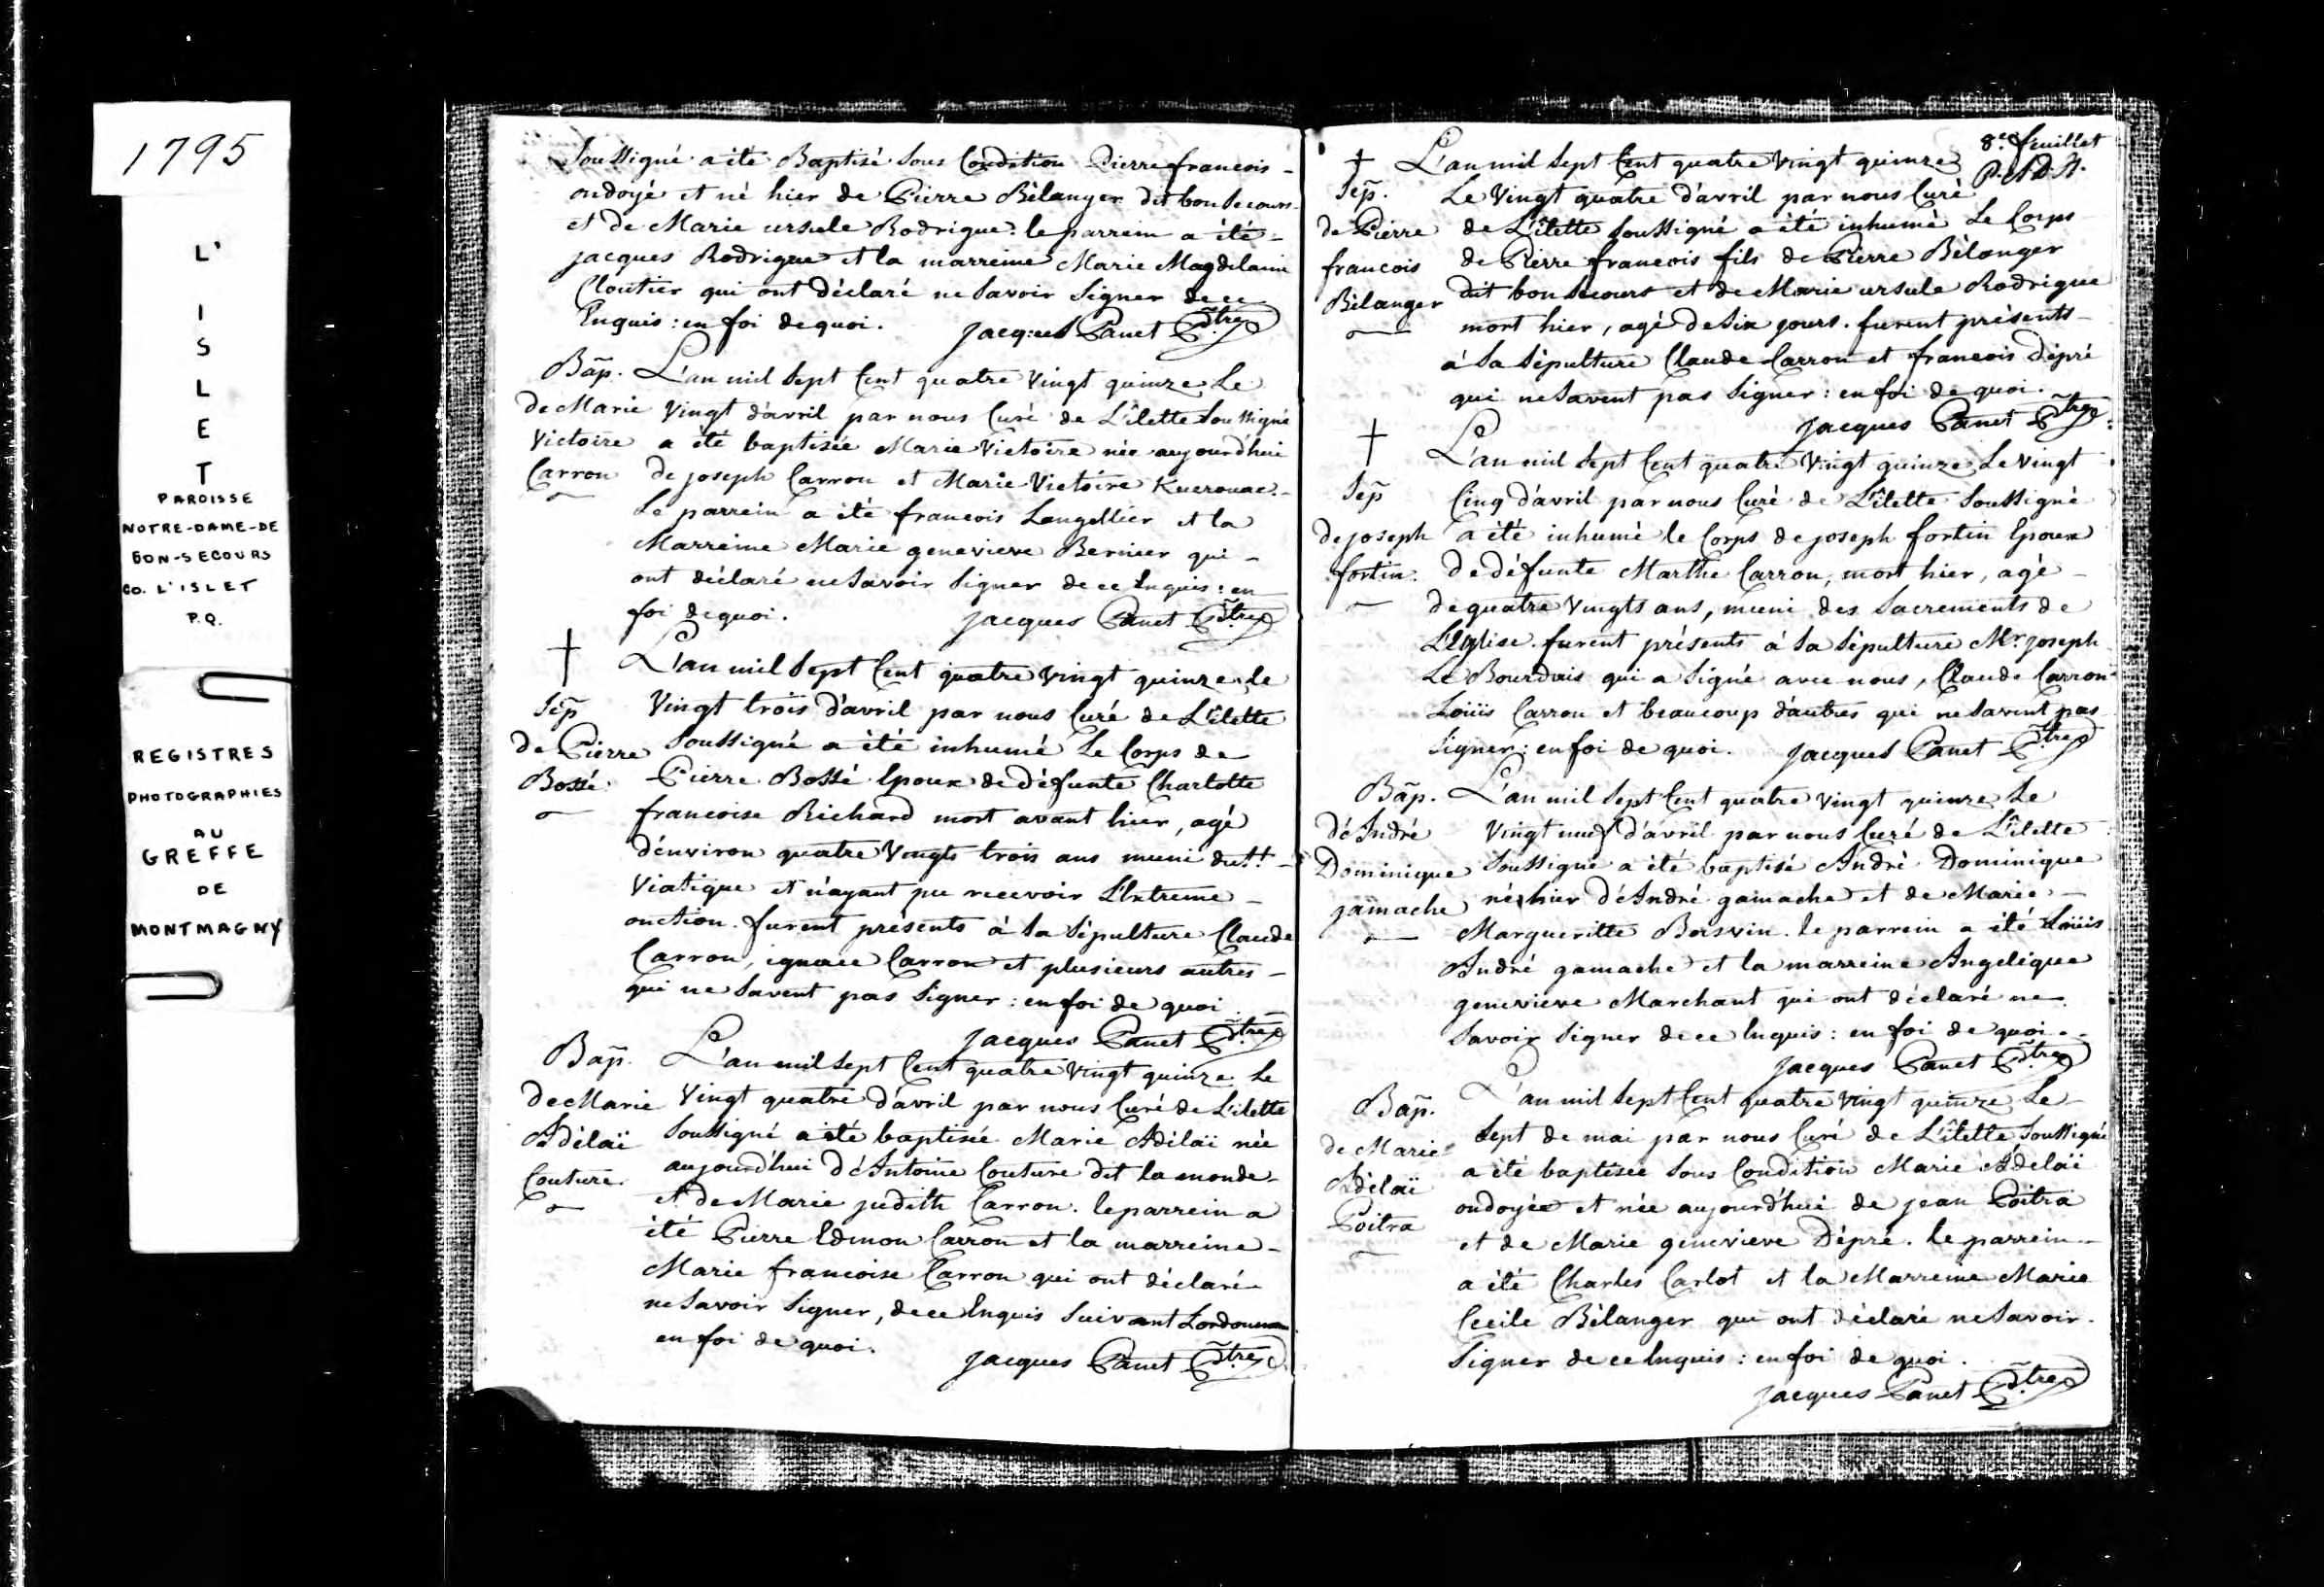 1795
L'
I
S
L
E
T
PAROISSE
NOTRE-DAME-DE
BON-SECOURS
CO. L'ISLET
P.Q.
REGISTRES
PHOTOGRAPHIES
AU
GREFFE
DE
MONTMAGNY
Soussigné a été Baptisé Sous Condition Pierre francois -
ondoyé et né hier de Pierre Bélanger dit bonsecours
et de Marie ursule Rodrigue. le parrein a été -
jacques Rodrigue et la marreine Marie Magdelaine
Cloutier qui ont déclaré ne Savoir Signer de ce
Enquis : en foi de quoi. jacques Panet Ptre
Bap. L'an mil Sept Cent quatre Vingt quinze Le
de Marie Vingt d'avril par nous Curé de L'ilette Soussigné
Victoire a été baptisée Marie Victoire née aujourd'hui
Carron de joseph Carron et Marie Victoire Kuerouac. -
Le parrein a été francois Langellier et la
Marreine Marie genevieve Bernier qui -
ont déclaré ne Savoir Signer de ce Enquis : en
foi de quoi. jacques Panet Ptre
L'an mil Sept Cent quatre Vingt quinze Le
Sep Vingt trois d'avril par nous Curé de L'ilette
de Pierre Soussigné a été inhumé Le Corps de
Bossé Pierre Bossé Epoux de défunte Charlotte
francoise Richard mort avant hier, agé
d'environ quatre Vingts trois ans muni du St. -
Viatique et n'ayant pu recevoir L'Extreme -
onction. furent présents à Sa Sépulture Claude
Carron, ignace Carron et plusieurs autres -
qui ne Savent pas Signer : en foi de quoi.
jacques Panet Ptre
Bap. L'an mil Sept Cent quatre Vingt quinze Le
de Marie Vingt quatre d'avril par nous Curé de L'ilette
Adélaï Soussigné a été baptisée Marie Adélaï née
Couture aujourd'hui d'Antoine Couture dit la monde -
et de Marie judith Carron. le parrein a
été Pierre Edmon Carron et la marreine -
Marie francoise Carron qui ont déclaré
ne Savoir Signer, de ce Enquis Suivant
en foi de quoi. jacques Panet Ptre
8e feuillet
L'an mil Sept Cent quatre Vingt quinze
Sep. Le Vingt quatre d'avril par nous Curé
de Pierre de L'ilette Soussigné a été inhumé Le Corps
francois de Pierre francois fils de Pierre Bélanger
Bélanger dit bonsecours et de Marie ursule Rodrigue
mort hier, agé de Six jours. furent présents -
à Sa Sépulture Claude Carron et francois Dépré
qui ne Savent pas Signer : en foi de quoi.
jacques Panet Ptre
L'an mil Sept Cent quatre Vingt quinze Le Vingt
Sep Cinq d'avril par nous Curé de L'ilette Soussigné
de joseph a été inhumé le Corps de joseph fortin Epoux
fortin. de défunte Marthe Carron, mort hier, agé -
de quatre Vingts ans, muni des Sacrements de
L'Eglise. furent présents à Sa Sépulture Mr. joseph
Le Bourdais qui a Signé avec nous, Claude Carron
Loüis Carron et beaucoup d'autres qui ne Savent pas
Signer : en foi de quoi. jacques Panet Ptre
Bap. L'an mil Sept Cent quatre Vingt quinze Le
d'André Vingt neuf d'avril par nous Curé de L'ilette
Dominique Soussigné a été baptisé André Dominique
gamache né hier d'André gamache et de Marie -
Margueritte Boisvin. le parrein a été Loüis
André gamache et la marreine Angelique
genevieve Marchant qui ont déclaré ne
Savoir Signer de ce Enquis : en foi de quoi. -
jacques Panet Ptre
Bap. L'an mil Sept Cent quatre Vingt quinze Le
de Marie Sept de mai par nous Curé de L'ilette Soussigné
Adélaï a été baptisée Sous Condition Marie Adelaï
Poitra ondoyée et née aujourd'hui de jean Poitra
et de Marie genevieve Dépré. le parrein -
a été Charles Carlot et la Marreine Marie
Cecile Bélanger qui ont déclaré ne Savoir -
Signer de ce Enquis : en foi de quoi.
jacques Panet Ptre